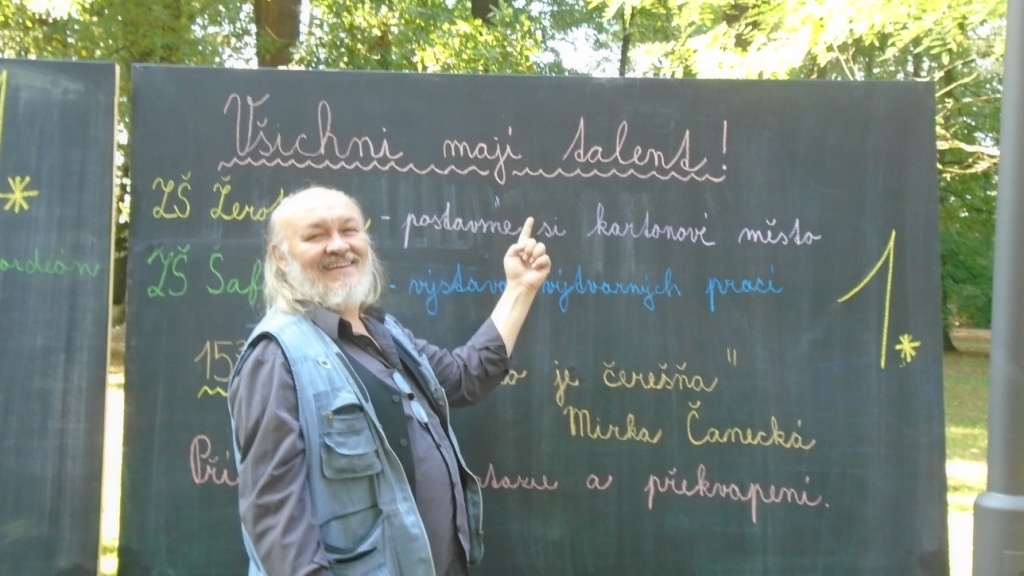 Všichni mají talent!
ZŠ - postavme si kartonové město
ZŠ - výstava výtvarných prací
je čerešňa"
Mirka Čanecká
a překvapení.
1*
*